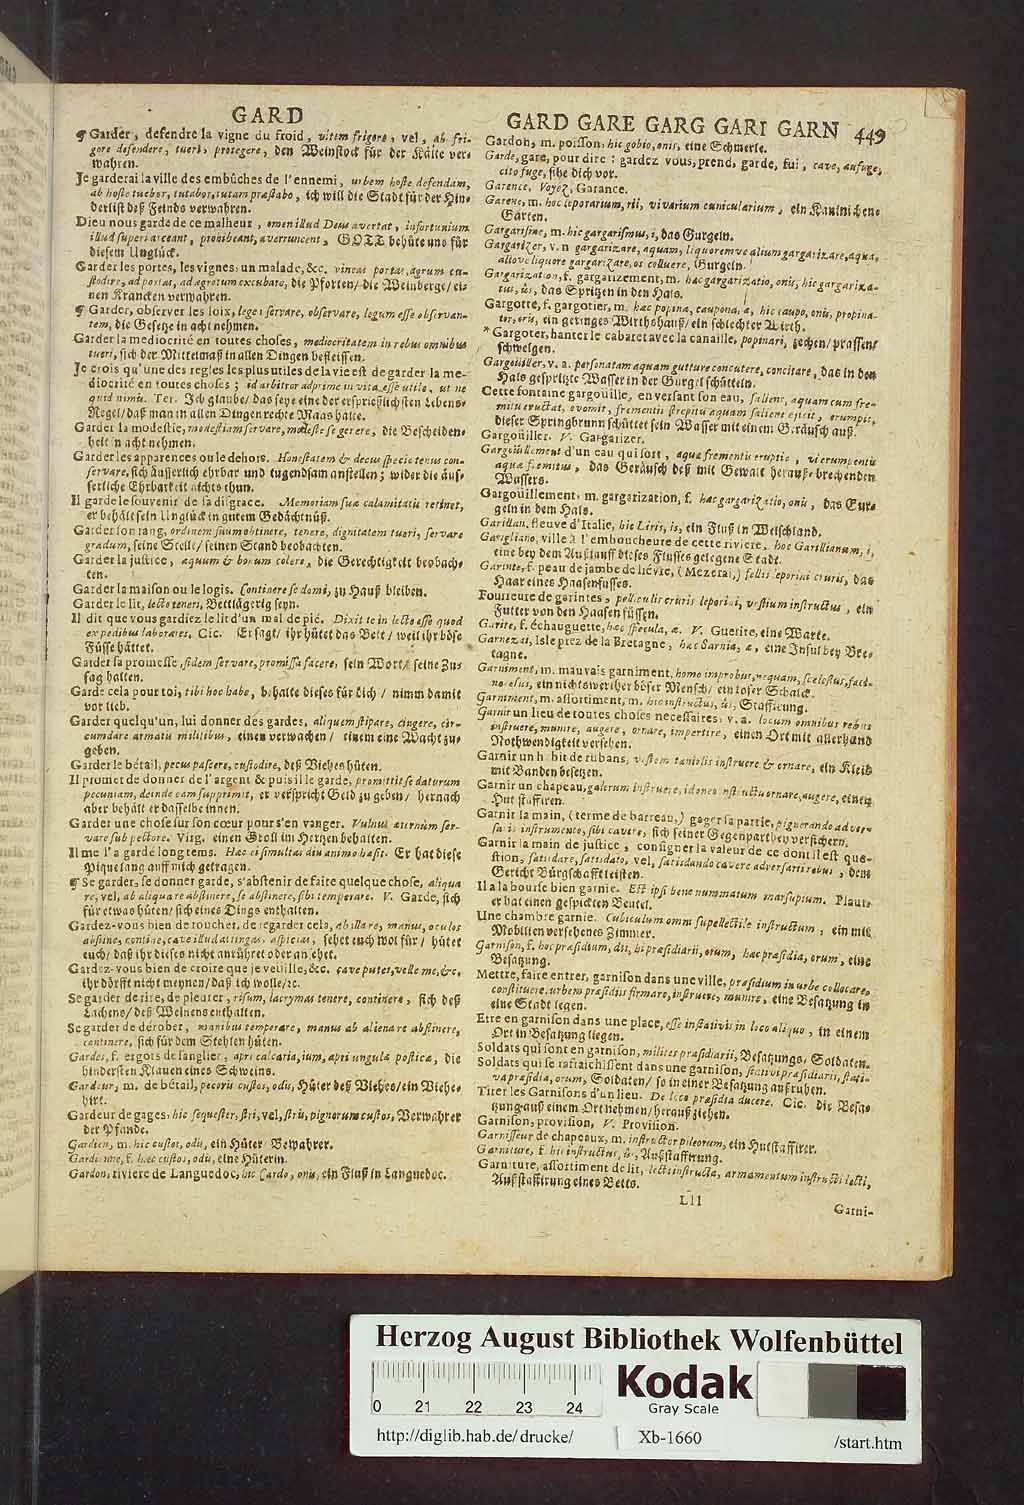 GARD
¶ Garder, defendre la vigne du froid, vitem frigore, vel, ab fri-
gore defendere, tueri, protegere, den Weinstock für der Kälte ver-
wahren.
Je garderai la ville des embûches de l'ennemi, urbem hoste defendam,
ab hoste tuebor, tutabor, tutam præstabo, ich will die Stadt für der Hin-
derlist deß Feinds verwahren.
Dieu nous garde de ce malheur, omen illud Deus avertat, infortunium
illud superi arceant, prohibeant, averruncent, GOTT behüte uns für
diesem Unglück.
Garder les portes, les vignes, un malade, &c. vineas portas, agrum cu-
stodire, ad portas, ad ægrotum excubare, die Pforten/ die Weinberge/ ei-
nen Krancken verwahren.
¶ Garder, observer les loix, leges servare, observare, legum esse observan-
tem, die Gesetze in acht nehmen.
Garder la mediocrité en toutes choses, mediocritatem in rebus omnibus
tueri, sich der Mittelmaß in allen Dingen befleissen.
Je crois qu'une des regles les plus utiles de la vie est de garder la me-
diocrité en toutes choses; id arbitror adprime in vita esse utile, ut ne
quid nimis. Ter. Ich glaube/ das seye eine der ersprießlichsten Lebens-
Regel/ daß man in allen Dingen rechte Maas halte.
Garder la modestie, modestiam servare, modeste se gerere, die Bescheiden-
heit in acht nehmen.
Garder les apparences ou le dehors. Honestatem & decus specie tenus con-
servare, sich äusserlich ehrbar und tugendsam anstellen; wider die äus-
serliche Ehrbarkeit nichts thun.
Il garde le souvenir de sa disgrace. Memoriam suæ calamitatis retinet,
er behält sein Unglück in gutem Gedächtnüß.
Garder son rang, ordinem suum obtinere, tenere, dignitatem tueri, servare
gradum, seine Stelle/ seinen Stand beobachten.
Garder la justice, æquum & bonum colere, die Gerechtigkeit beobach-
ten.
Garder la maison ou le logis. Continere se domi, zu Hauß bleiben.
Garder le lit, lecto teneri, Bettlägerig seyn.
Il dit que vous gardiez le lit d'un mal de pié. Dixit te in lecto esse quod
ex pedibus laborares, Cic. Er sagt/ ihr hütet das Bett/ weil ihr böse
Füsse hättet.
Garder sa promesse, fidem servare, promissa facere, sein Wort/ seine Zu-
sag halten.
Garde cela pour toi, tibi hoc habe, behalte dieses für dich/ nimm damit
vor lieb.
Garder quelqu'un, lui donner des gardes, aliquem stipare, cingere, cir-
cumdare armatis militibus, einen verwachen/ einem eine Wacht zu-
geben.
Garder le bétail, pecus pascere, custodire, deß Viehes hüten.
Il promet de donner de l'argent & puis il le garde, promittit se daturum
pecuniam, deinde eam supprimit, er verspricht Geld zu geben/ hernach
aber behält er dasselbe innen.
Garder une chose sur son cœur pour s'en vanger. Vulnus æternum ser-
vare sub pectore. Virg. einen Groll im Hertzen behalten.
Il me l'a gardé long tems. Hæc ei simultas diu animo hæsit. Er hat diese
Pique lang auff mich getragen.
¶ Se garder, se donner garde, s'abstenir de faire quelque chose, aliqua
re, vel, ab aliqua re abstinere, se abstinere, sibi temperare. V. Garde, sich
für etwas hüten/ sich eines Dings enthalten.
Gardez-vous bien de toucher, de regarder cela, ab illa re, manus, oculos
abstine, contine, cave illud attingas, aspicias, sehet euch wol für/ hütet
euch/ daß ihr dieses nicht anrühret oder ansehet.
Gardez-vous bien de croire que je veüille, &c. cave putes, velle me, &c,
ihr dörfft nicht meynen/ daß ich wolle/ ꝛc.
Se garder de rire, de pleurer, risum, lacrymas tenere, continere, sich deß
Lachens/ deß Weinens enthalten.
Se garder de dérober, manibus temperare, manus ab alieno re abstinere,
continere, sich für dem Stehlen hüten.
Gardes, f. ergots de sanglier, apri calcaria, ium, apri ungula postica, die
hindersten Klauen eines Schweins.
Gardeur, m. de bétail, pecoris custos, odis, Hüter deß Viehes/ ein Viehe-
hirt.
Gardeur de gages, hic sequester, stri, vel, stris, pignorum custos, Verwahrer
der Pfande.
Gardien, m. hic custos, odis, ein Hüter/ Bewahrer.
Gardienne, f. hæc custos, odis, eine Hüterin.
Gardon, riviere de Languedoc, hic Cardo, onis, ein Fluß in Languedoc.
GARD GARE GARG GARI GARN 449
Gardon, m. poisson, hic gobio, onis, eine Schmerle.
Garde, gare, pour dire: gardez vous, prend, garde, fui, cave, aufuge,
cito fuge, sihe dich vor.
Garence, Voyez, Garance.
Garene, m. hoc leporarium, rii, vivarium cunicularium, ein Kaninichen-
Garten.
Gargarisme, m. hic gargarismus, i, das Gurgeln.
Gargarizer, v. n gargarizare, aquam, liquoremve alium gargarizare, aqua,
aliove liquore gargarizare, os colluere, Gurgeln.
Gargarization, f. gargarizement, m. hæc gargarizatio, onis, hic gargariza-
tus, ûs, das Spritzen in den Hals.
Gargotte, f. gargotier, m. hæc popina, caupona, æ, hic caupo, onis, propina-
tor, oris, ein geringes Wirthshauß/ ein schlechter Wirth.
* Gargoter, hanter le cabaret avec la canaille, popinari, zechen/ prassen/
schwelgen.
Gargoüiller, v. a. personatam aquam gutture concutere, concitare, das in den
Hals gespritzte Wasser in der Gurgel schütteln.
Cette fontaine gargouille, en versant son eau, saliens, aquam cum fre-
mitu eructat, evomit, frementis strepitu aquam saliens ejicit, erumpit,
dieser Springbrunn schüttet sein Wasser mit einem Geräusch auß.
Gargoüiller. V. Gargarizer.
Gargoüillement d'un eau qui sort, aquæ frementis eruptio, vi erumpentis
aquæ fremitus, das Geräusch deß mit Gewalt herauß-brechenden
Wassers.
Gargoüillement, m. gargarization, f. hæc gargarizatio, onis, das Gur-
geln in dem Hals.
Garillan, fleuve d'Italie, hic Liris, is, ein Fluß in Welschland.
Garigliano, ville à l'emboucheure de cette riviere, hoc Garillianum, i,
eine bey dem Außlauff dieses Flusses gelegene Stadt.
Garinte, f. peau de jambe de liévre, (Mezerai,) pellis leporini cruris, das
Haar eines Haasenfusses.
Fourreure de garintes, pelliculis cruris leporini, vestium instructus, ein
Futter von den Haasen füssen.
Garite, f. échauguette, hæc specula, æ. V. Guerite, eine Warte.
Garnezai, Isle prez de la Bretagne, hæc Sarnia, æ, eine Insul bey Bre-
tagne.
Garniment, m. mauvais garniment, homo improbus, nequam, scelestus, faci-
norosus, ein nichtswerther böser Mensch/ ein loser Schalck.
Garniment, m. assortiment, m. hic instructus, ûs, Staffirung.
Garnir un lieu de toutes choses necessaires, v. a. locum omnibus rebus
instruere, munire, augere, ornare, impertire, einen Ort mit allerhand
Nothwendigkeit versehen.
Garnir un habit de rubans, vestem tæniolis instruere & ornare, ein Kleid
mit Banden besetzen.
Garnir un chapeau, galerum instruere, idoneo instructu ornare, augere, einen
Hut staffiren.
Garnir la main, (terme de barreau,) gager sa partie, pignerando adver-
sarii instrumento, sibi cavere, sich seiner Gegenparthey versichern.
Garnir la main de justice, consigner la valeur de ce dont il est que-
stion, satisdare, satisdato, vel, satisdando cavere adversarii rebus, dem
Gericht Bürgschafft leisten.
Il a la bourse bien garnie. Est ipsi bene nummatum marsupium. Plaut.
er hat einen gespickten Beutel.
Une chambre garnie. Cubiculum omni supellectile instructum, ein mit
Mobilien versehenes Zimmer.
Garnison, f. hoc præsidium, dii, hi præsidiarii, orum, hæc præsidia, orum, eine
Besatzung.
Mettre, faire entrer, garnison dans une ville, præsidium in urbe collocare,
constituere, urbem præsidiis firmare, instruere, munire, eine Besatzung in
eine Stadt legen.
Etre en garnison dans une place, esse in stativis in loco aliquo, in einem
Ort in Besatzung liegen.
Soldats qui sont en garnison, milites præsidiarii, Besatzungs-Soldaten.
Soldats qui se rafraichissent dans une garnison, stativi præsidiarii, stati-
va præsidia, orum, Soldaten/ so in einer Besatzung außruhen.
Tirer les Garnisons d'un lieu. De loco præsidia ducere. Cic. die Besa-
tzung auß einem Ort nehmen/ herauß ziehen.
Garnison, provision, V. Provision.
Garnisseur de chapeaux, m. instructor pileorum, ein Hutstaffirer.
Garniture, f. hic instructus, ûs, Außstaffirung.
Garniture, assortiment de lit, lecti instructus, armamentum instructi lecti,
Außstaffirung eines Betts.
Lll
Garni-
Herzog August Bibliothek Wolfenbüttel
0 21 22 23 24
Kodak
Gray Scale
http://diglib.hab.de/drucke/
Xb-1660
/start.htm